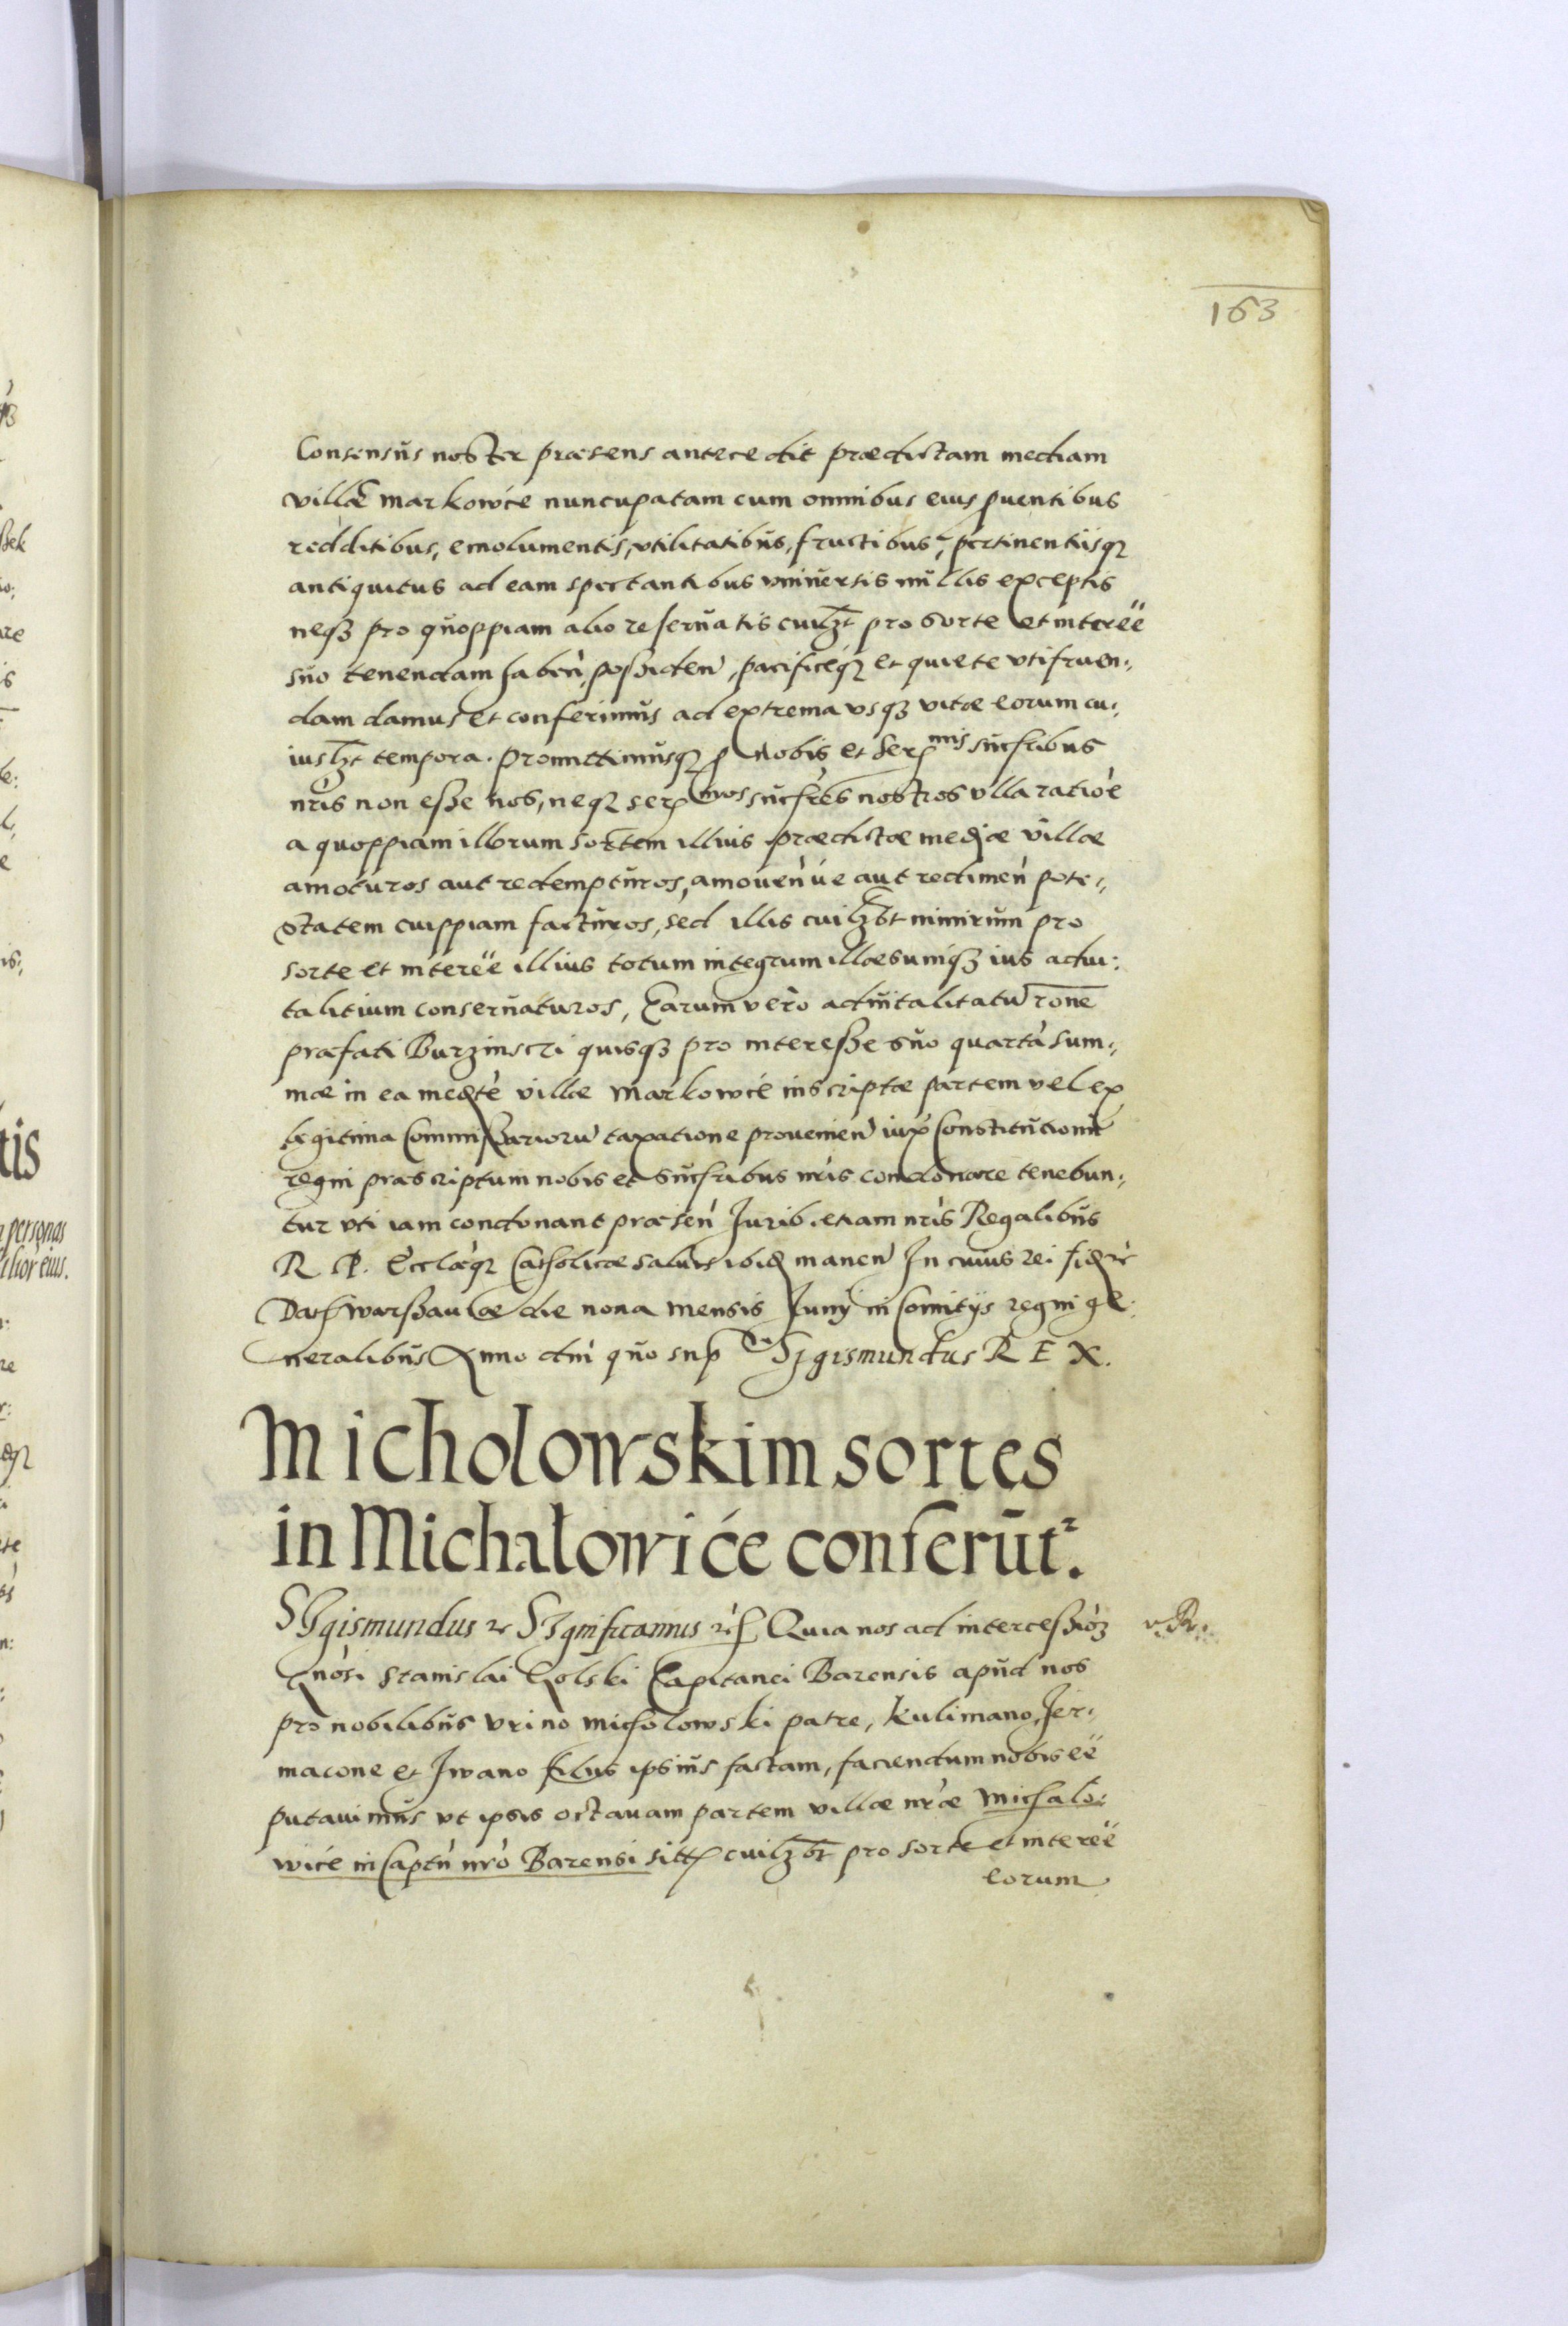 163
Consensus noster præsens antecedit prædictam mediam
villæ Markowce nuncupatam cum omnibus eius puentibus
redditibus, emolumentis, vtilitatibus, fructibus, pertinentiisq
antiquitus ad eam spectantibus vniuersis nullis exceptis
neq pro quoppiam alio reseruatis cuilzt pro sorte et interee
suo tenendam haben, possiden, pacificeq et quiete vtifruen,
dam damus et conferimus ad extrema vsq vitæ eorum cu,
iuslzt tempora. Promittimusq p nobis et Ser mis sucsribus
nris non esse nos, neq ser mos sucsres nostros vlla ratioe
a quoppiam illorum sortem illius prædictæ mediæ villæ
amoturos aut redempturos, amouen ue aut redimen pote,
statem cuippiam facturos, sed illis cuilzbt nimirum pro
sorte et interee illius totum integrum illæsumq ius adui:
talitium conseruaturos, Earum vero aduitalitatu rone
præfati Burzinscri quisq pro interesse suo quarta sum,
mæ in ea medte villæ Markowce inscriptæ partem vel ex
legitima Commissarioru taxatione prouenien iux Constitutionu
regni præscriptum nobis et sucsribus nris condonare tenebun,
tur vti iam condonant præsen Jurib. etiam nris Regalibus
R P. Ecclæq Catholicæ saluis ibid manen In cuius rei fid &
Dat Warssauiæ die nona mensis Junij in Comitijs regni ge:
neralibus Anno dni quo sup Sigismundus R E X.
Micholowskim sortes
in Michałowice conferūt.
SIgismundus & SIgnificamus & Quia nos ad intercessioz
Gnosi Stanislai Golski Capitanei Barensis apud nos
pro nobilibus Vrino Micholowski patre, Kulimano, Jer,
macone et Jwano filus ipsius factam, faciendum nobis ee
putauimus vt ipsis octauam partem villæ nræ Michalo:
wice in Captu nro Barensi sitt cuilzbt pro sorte et interee
eorum